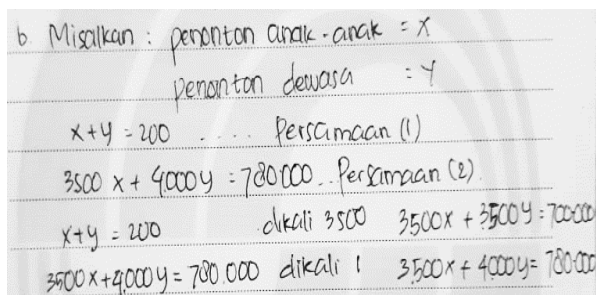 b Misalkan : penonton anak-anak = X
penonton dewasa : Y
x+y = 200 .... Persamaan (1)
3500 x + 4000 y = 780000 .. Persamaan (2).
x+y = 200 dikali 3500 3500x + 3500y = 700.000
3500x+4000y = 780.000 dikali 1 3500x + 4000y = 780.000